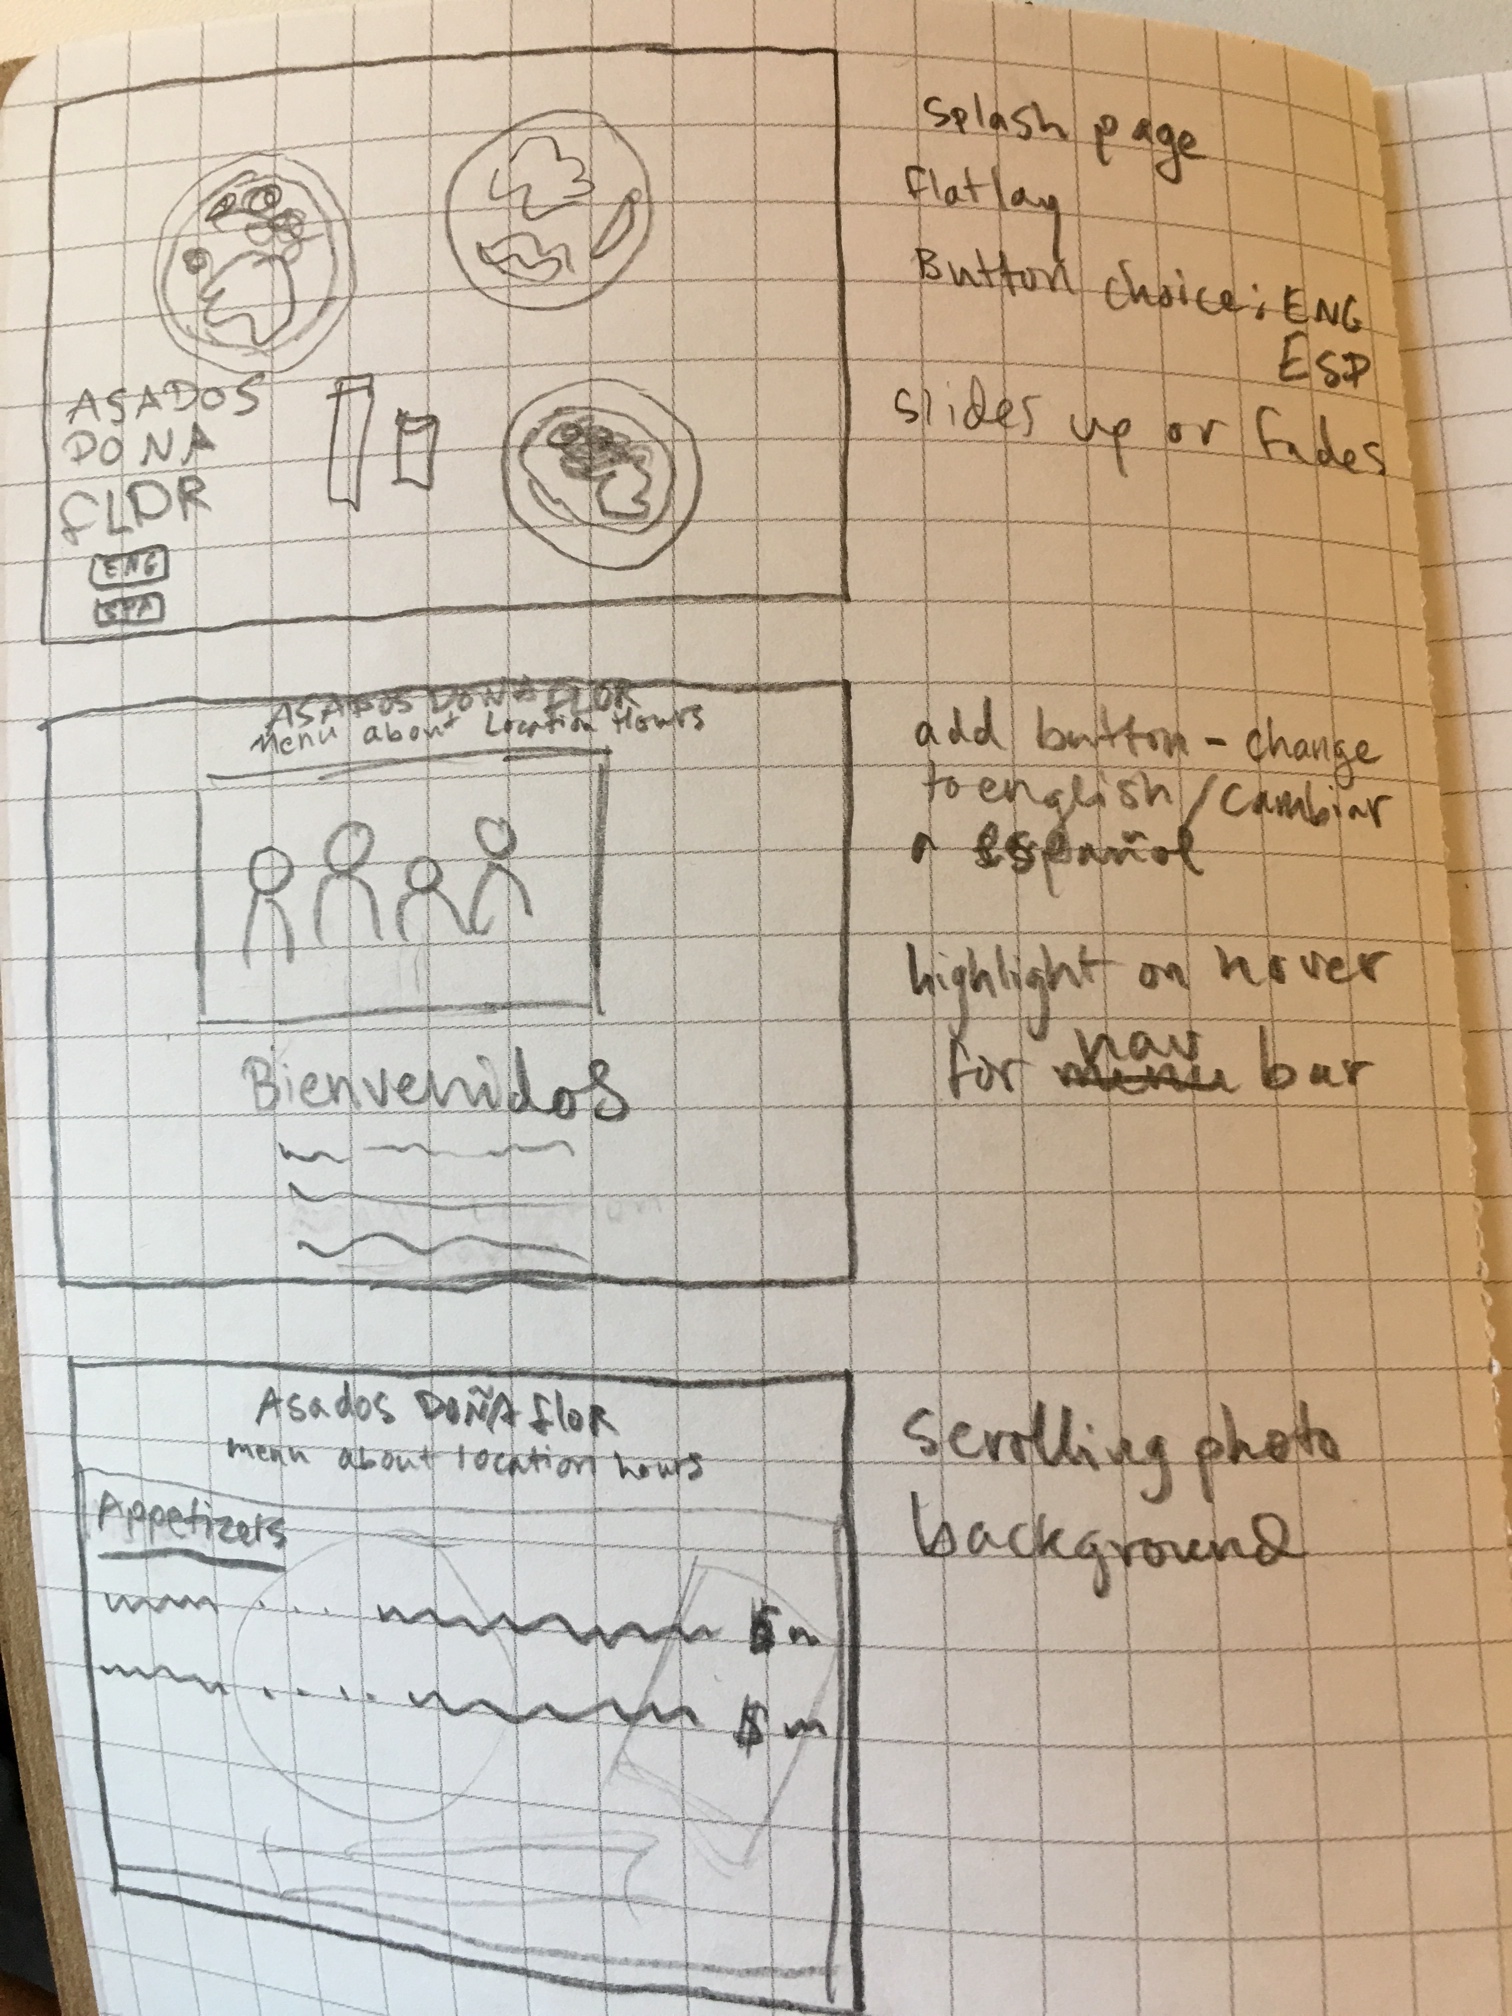 Splash page
Flatlay
Button choice: ENG
ESP
slides up or fades
ASADOS
DONA
FLOR
ENG
SPA
ASADOS DONA FLOR
Menu about Location Hours
Bienvenidos
add button - change
to english / Cambiar
a Español
highlight on hover
nav
for menu bar
Asados DOÑA flor
menu about location hours
Appetizers
$
$
scrolling photo
background